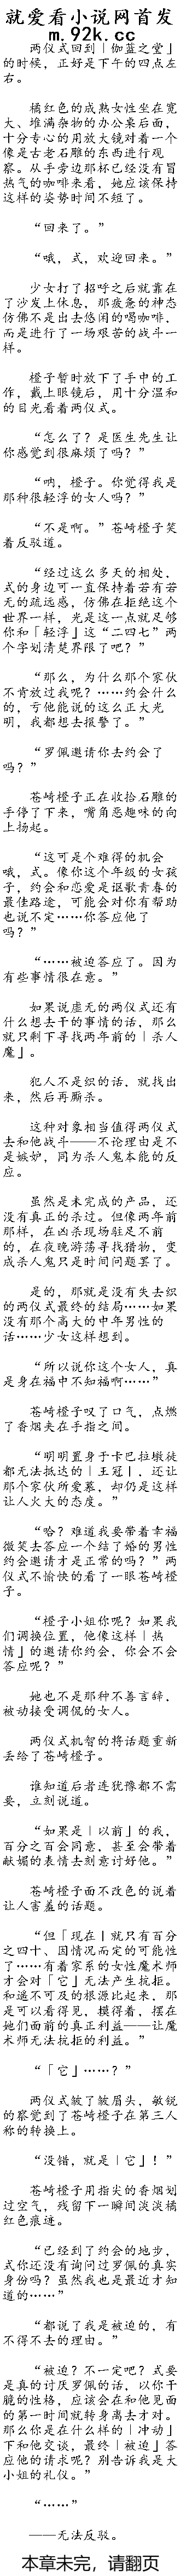 就爱看小说网首发
m.92k.cc
两仪式回到「伽蓝之堂」
的时候，正好是下午的四点左
右。
橘红色的成熟女性坐在宽
大、堆满杂物的办公桌后面，
十分专心的用放大镜对着一个
像是古老石雕的东西进行观
察。从手旁边那杯已经没有冒
热气的咖啡来看，她应该保持
这样的姿势时间不短了。
“回来了。”
“哦，式，欢迎回来。”
少女打了招呼之后就靠在
了沙发上休息，那疲惫的神态
仿佛不是出去悠闲的喝咖啡，
而是进行了一场艰苦的战斗一
样。
橙子暂时放下了手中的工
作，戴上眼镜后，用十分温和
的目光看着两仪式。
“怎么了？是医生先生让
你感觉到很麻烦了吗？”
“呐，橙子。你觉得我是
那种很轻浮的女人吗？”
“不是啊。”苍崎橙子笑
着反驳道。
“经过这么多天的相处，
式的身边可一直保持着若有若
无的疏远感，仿佛在拒绝这个
世界一样，光是这一点就足够
你和「轻浮」这“二四七”两
个字划清楚界限了吧？”
“那么，为什么那个家伙
不肯放过我呢？……约会什么
的，亏他能说的这么正大光
明，我都想去报警了。”
“罗佩邀请你去约会了
吗？”
苍崎橙子正在收拾石雕的
手停了下来，嘴角恶趣味的向
上扬起。
“这可是个难得的机会
哦，式。像你这个年级的女孩
子，约会和恋爱是讴歌青春的
最佳路途，可能会对你有帮助
也说不定……你答应他了
吗？”
“……被迫答应了。因为
有些事情很在意。”
如果说虚无的两仪式还有
什么想去干的事情的话，那么
就只剩下寻找两年前的「杀人
魔」。
犯人不是织的话，就找出
来，然后再厮杀。
这种对象相当值得两仪式
去和他战斗——不论理由是不
是嫉妒，同为杀人鬼本能的反
应。
虽然是未完成的产品，还
没有真正的杀过。但像两年前
那样，在凶杀现场驻足不前
的，在夜晚游荡寻找猎物，变
成杀人鬼只是时间问题罢了。
是的，那就是没有失去织
的两仪式最终的结局……如果
没有那个高大的中年男性的
话……少女这样想到。
“所以说你这个女人，真
是身在福中不知福啊……”
苍崎橙子叹了口气，点燃
了香烟夹在手指之间。
“明明置身于卡巴拉墩徒
都无法抵达的「王冠」，还让
那个家伙所爱慕，却仍是这样
让人火大的态度。”
“哈？难道我要带着幸福
微笑去答应一个结了婚的男性
约会邀请才是正常的吗？”两
仪式不愉快的看了一眼苍崎橙
子。
“橙子小姐你呢？如果我
们调换位置，他像这样「热
情」的邀请你约会，你会不会
答应呢？”
她也不是那种不善言辞，
被动接受调侃的女人。
两仪式机智的将话题重新
丢给了苍崎橙子。
谁知道后者连犹豫都不需
要，立刻说道。
“如果是「以前」的我，
百分之百会同意，甚至会带着
献媚的表情去刻意讨好他。”
苍崎橙子面不改色的说着
让人害羞的话题。
“但「现在」就只有百分
之四十、因情况而定的可能性
了……有着家系的女性魔术师
才会对「它」无法产生抗拒。
和遥不可及的根源比起来，那
是可以看得见，摸得着，摆在
她们面前的真正利益——让魔
术师无法抗拒的利益。”
“「它」……？”
两仪式皱了皱眉头，敏锐
的察觉到了苍崎橙子在第三人
称的转换上。
“没错，就是「它」！”
苍崎橙子用指尖的香烟划
过空气，残留下一瞬间淡淡橘
红色痕迹。
“已经到了约会的地步，
式你还没有询问过罗佩的真实
身份吗？虽然我也是最近才知
道的……”
“都说了我是被迫的，有
不得不去的理由。”
“被迫？不一定吧？式要
是真的讨厌罗佩的话，以你干
脆的性格，应该会在和他见面
的第一时间就转身离去才对。
那么你是在什么样的「冲动」
下和他交谈，最终「被迫」答
应他的请求呢？别告诉我是大
小姐的礼仪。”
“……”
——无法反驳。
本章未完，请翻页